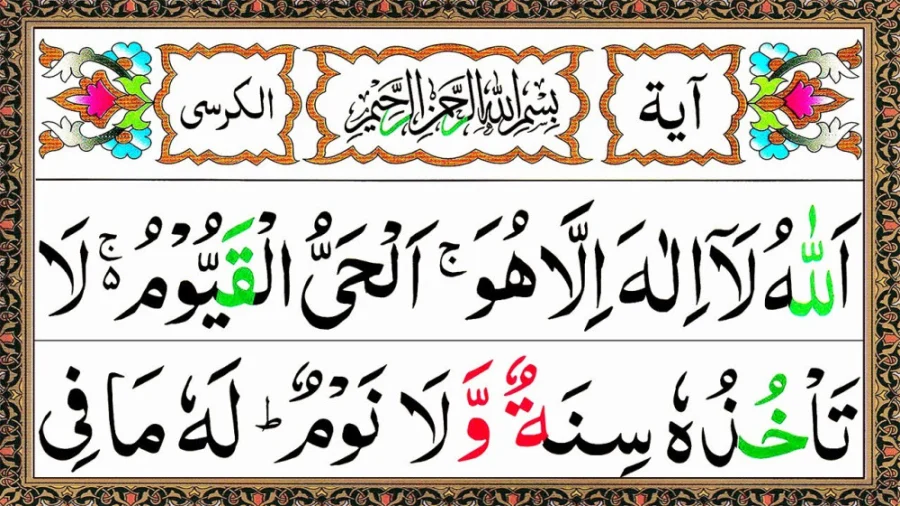 آية بِسْمِ اللهِ الرَّحْمٰنِ الرَّحِيْمِ الكرسى
اَللّٰهُ لَاۤ اِلٰهَ اِلَّا هُوَ ۚ اَلْحَىُّ الْقَيُّوْمُ ۚ ۵ لَا
تَاْخُذُهٗ سِنَةٌ وَّ لَا نَوْمٌ ؕ لَهٗ مَا فِى